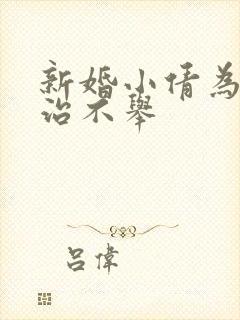 新婚小倩為
治不舉
呂偉